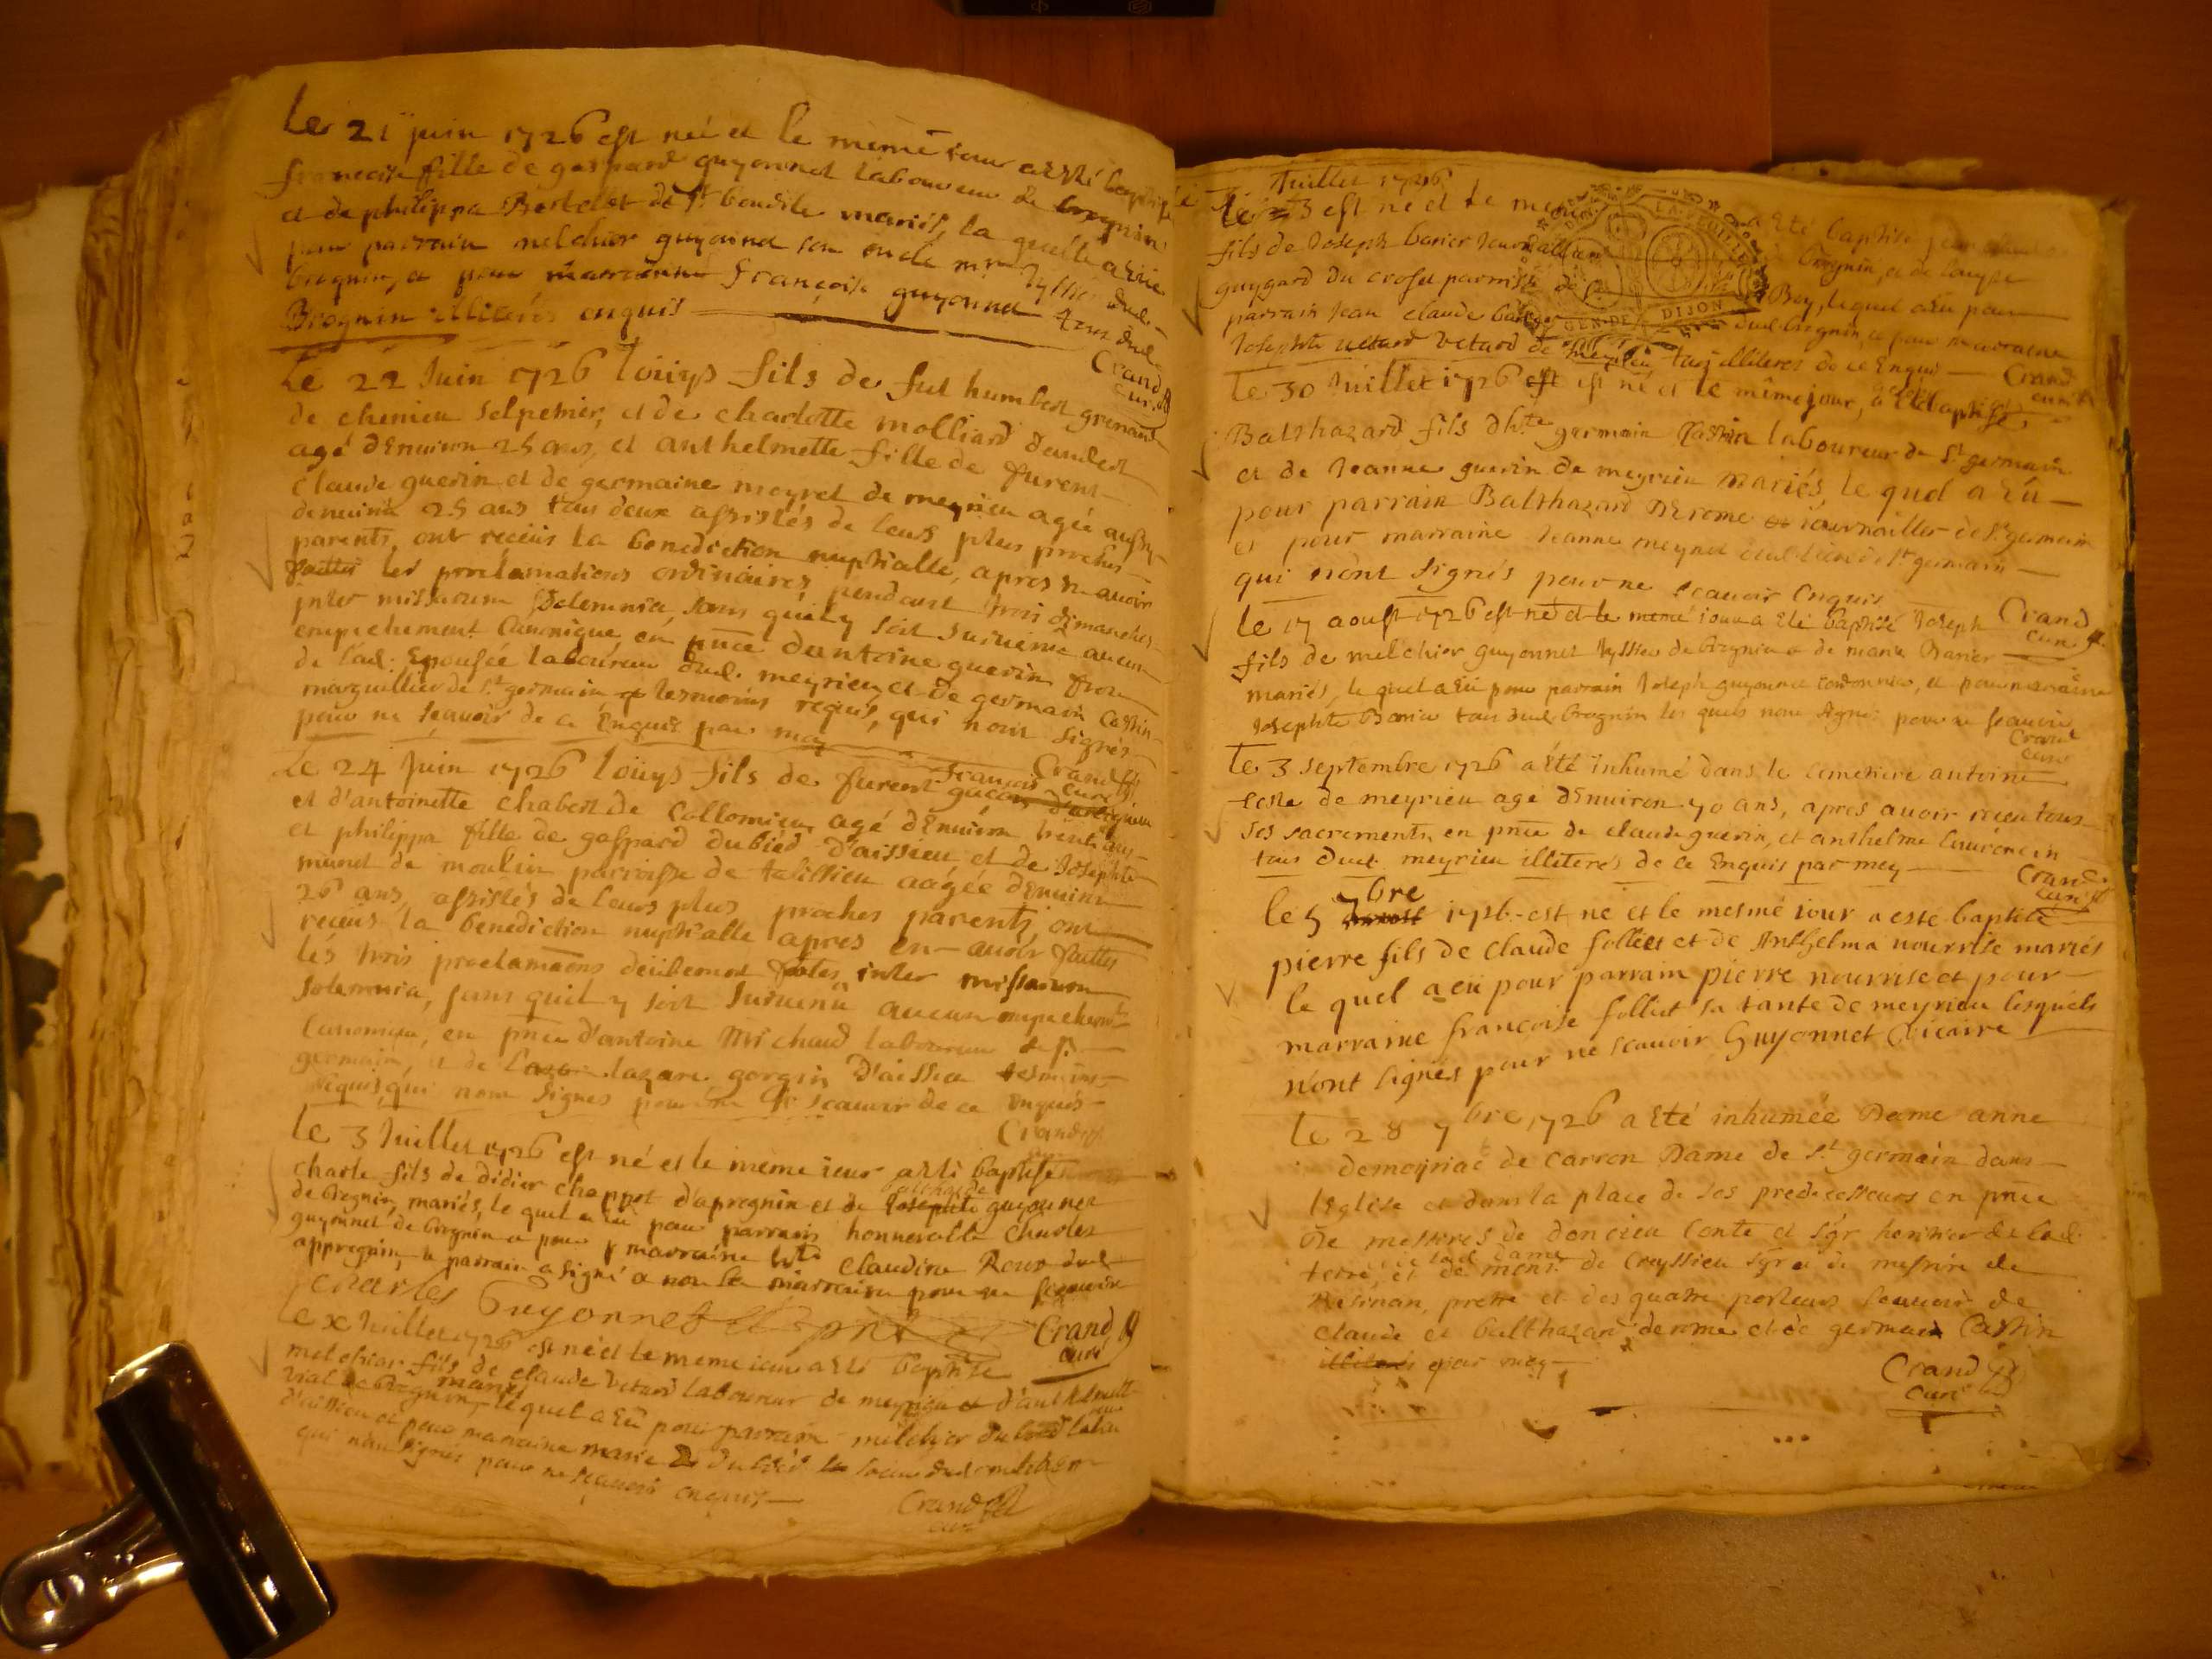 Le 21 juin 1726 est né et le mème iour a esté baptisée
francoise fille de gaspard guyonnet laboureur de brognin
et de philippa Bertelet de St. boudile mariés, la quelle a eüe
pour parrain melchior guyonnet son oncle tyssier dud.
brognin, et pour marraine françoise guyonnet tous dud.
Brognin illiterés enquis
Crand
curé
Le 22 Juin 1726 loüys fils de fut humbert grenand
de chemieu selpetrier, et de charlotte molliard d'andert
agé d'Enuiron 25 ans, et anthelmette fille de furent
claude guerin et de germaine meyret de meyrieu agée aussy
denuiron 25 ans tous deux assistés de leurs plus proches
parents, ont receüs la benediction nuptialle, apres en auoir
faittes les proclamations ordinaires pendant trois dimanches
inter missarum solemnia, sans quil y soit suruenu aucun
empechement Canonique, en pnce d'antoine guerin frere
de lad. Epousée laboureur dud. meyrieu et de germain Cassin
marguillier de St. germain tesmoins requis, qui n'ont signés
pour ne sçauoir de ce Enquis par moy
Crand
curé
Le 24 Juin 1726 loüys fils de furent françois
et d'antoinette chabert de Collomieu agé d'Enuiron trente ans
et philippa fille de gaspard dubied d'aissieu, et de Josephte
munet de moulin parroisse de talissieu aagée d'Enuiron
26 ans, assistés de leurs plus proches parents, ont
receus la benediction nuptialle apres en auoir faittes
les trois proclamaons deübement faites inter missarum
solemnia, sans quil y soit suruenü aucun empechemt
Canonique, en pnce d'antoine Michaud laboureur de St.
germain, et de lazare gorgin d'aissieu tesmoins
requis, qui n'ont signés pour ne sçauoir de ce enquis
Crand
Le 3 Juillet 1726 est né et le mème iour a esté baptisé
charle fils de didier chappot d'apregnin et de guyonnet
de brognin, mariés, le quel a eü pour parrain honnorable Charles
guyonnet de brognin et pour marraine hte Claudine Roux dud.
appregnin, le parrain a signé et non la marraine pour ne sçauoir
Charles Guyonnet
Crand
curé
Le x Juillet 1726 est né et le mème iour a esté baptisé
melchior fils de claude vetard laboureur de meyrieu et d'anthelmette
vial de brognin, mariés lequel a eü pour parrain melchior dubied
d'aissieu et pour marraine marie dubied soeur dud. melchior
qui n'ont signés pour ne sçauoir enquis
Crand
curé
Juillet 1726
Le 3 est né et le meme a esté baptisé
fils de Joseph barier Journallier brognin, et de louyse
guygard du crosu parroisse de Bey, lequel a eü pour
parrain Jean claude barier dud. brognin, et pour marraine
Josephte vetard de meyrieu tous illiteres de ce Enquis
Crand
curé
Le 30 Juillet 1726 est né et le mème jour, a été baptisé
Balthazard fils dhte germain Cassin laboureur de St. germain
et de Jeanne guerin de meyrieu mariés, le quel a Eü
pour parrain Balthazard DErome iournaillier de St. germain
et pour marraine Jeanne meynet de St. germain
qui n'ont signés pour ne scauoir Enquis
Crand
curé
Le 17 aoust 1726 est né et le mème iour a Eté baptisé Joseph
fils de melchior guyonnet tyssier de brognin et de marie Barier
mariés, le quel a eü pour parrain Joseph guyonnet cordonnier, et pour marraine
Josephte Barier tous dud. brognin les quels n'ont signés pour ne sçauoir
Crand
curé
Le 3 septembre 1726 a Eté inhumé dans le cemetiere antoine
teste de meyrieu agé d'Enuiron 70 ans, apres auoir receu tous
ses sacrements, en pnce de claude guerin, et anthelme laurencin
tous dud. meyrieu illiteres de ce Enquis par moy
Crand
curé
le 5 7bre 1726 est né et le mesme iour a esté baptisé
pierre fils de claude folliet et de Anthelma nourrise mariés
le quel a eü pour parrain pierre nourrise et pour
marraine francoise folliet sa tante de meyrieu lesquels
n'ont signés pour ne scauoir Guyonnet Vicaire
Le 28 7bre 1726 a Eté inhumée Dame anne
demeyriac de carron Dame de St. germain dans
l'Eglise et dans la place de ses predecesseurs en pnce
de messires de doncieu Conte et Sgr heritier de lad.
terre, et de lad. dame de monsr. de Cressieu Sgr et de messire de
prettre et des quatre porteurs scauoir de
claude et balthazard derome et de germain Cassin
illiterés par moy
Crand
curé